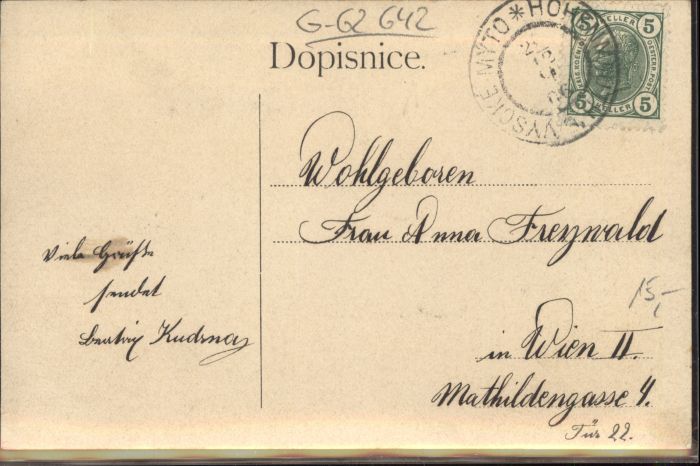 G-G2 642
Dopisnice.
VYSOKÉ MÝTO * HOHENMAUTH
5 HELLER 5
5 HELLER 5
Wohlgeboren
Frau Anna Freywald
in Wien II.
Mathildengasse 4.
Tür 22.
15,-
Viele Grüße
sendet
Kudrna